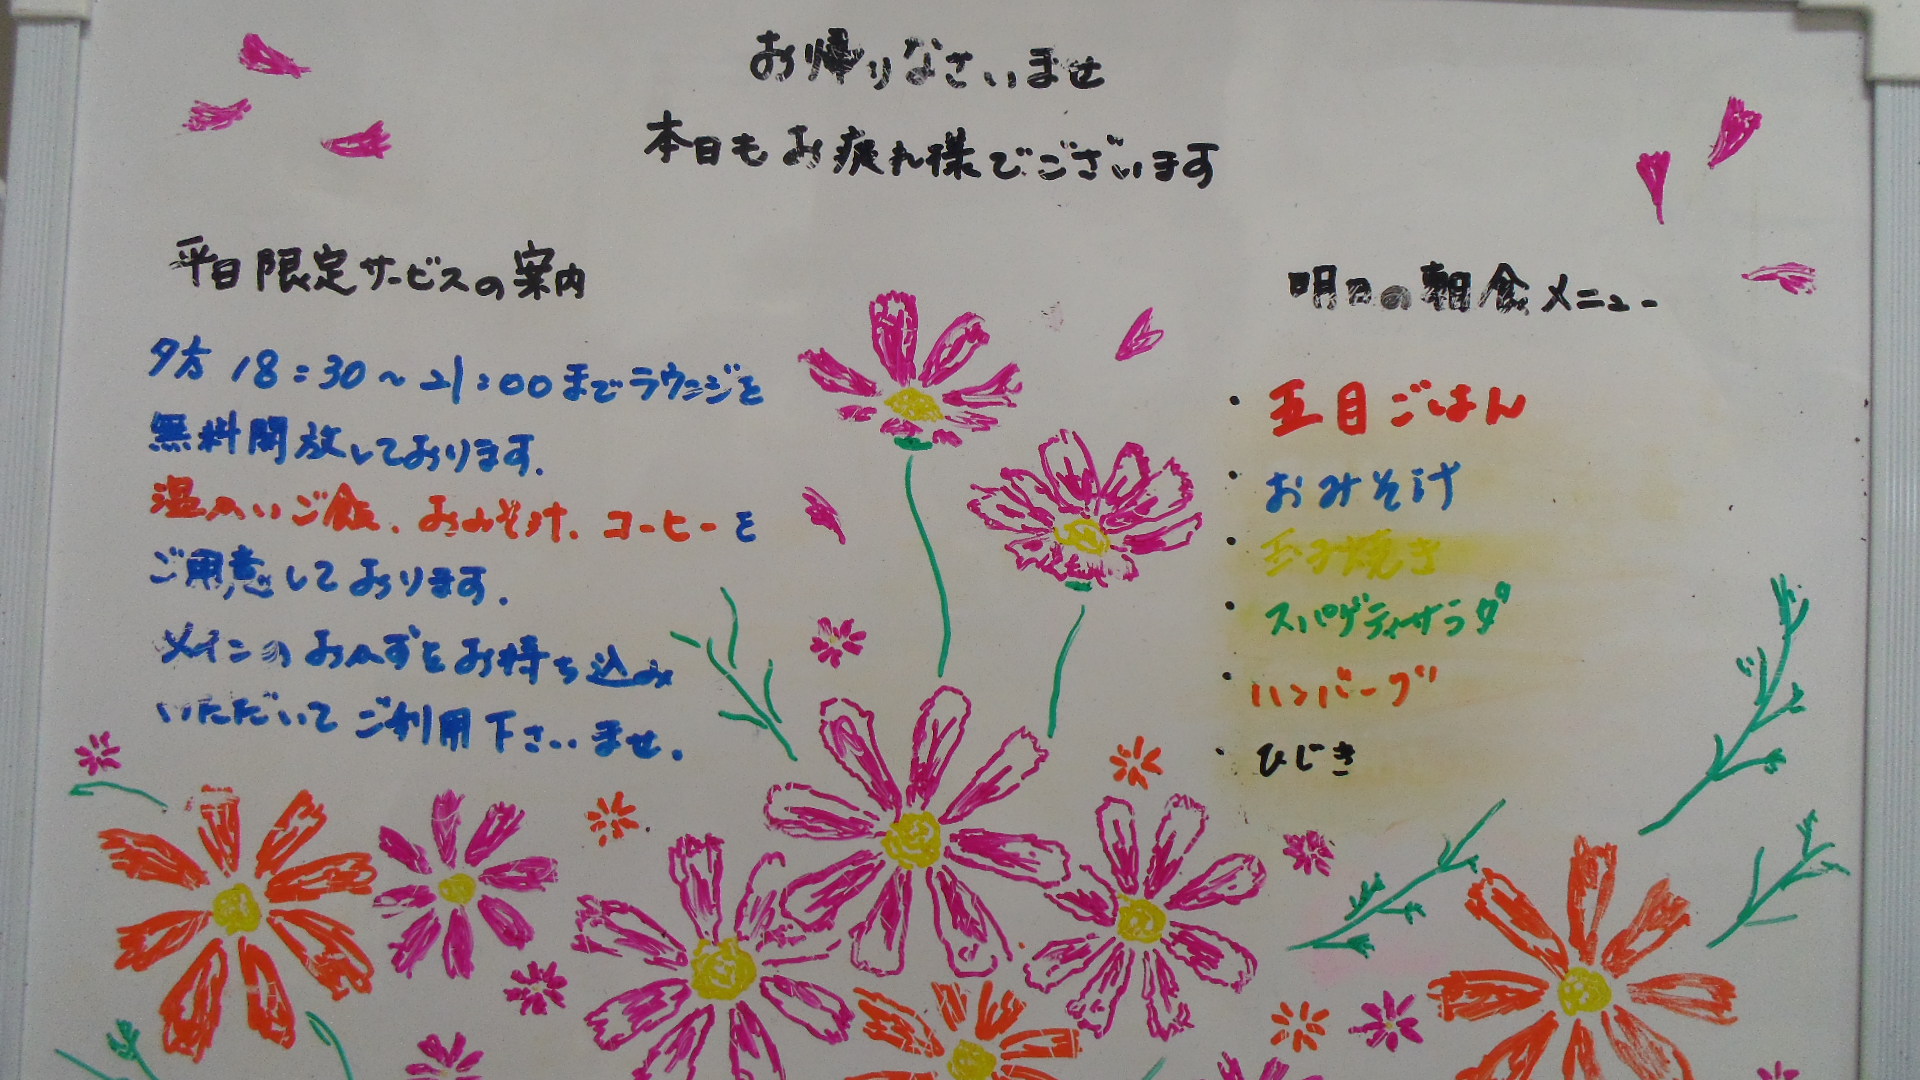 お帰りなさいませ
本日もお疲れ様でございます
平日限定サービスの案内
夕方 18:30〜21:00までラウンジを
無料開放しております.
温かいご飯、おみそ汁、コーヒーを
ご用意しております.
メインのおかずをお持ち込み
いただいてご利用下さいませ.
明日の朝食メニュー
・五目ごはん
・おみそ汁
・玉子焼き
・スパゲティサラダ
・ハンバーグ
・ひじき